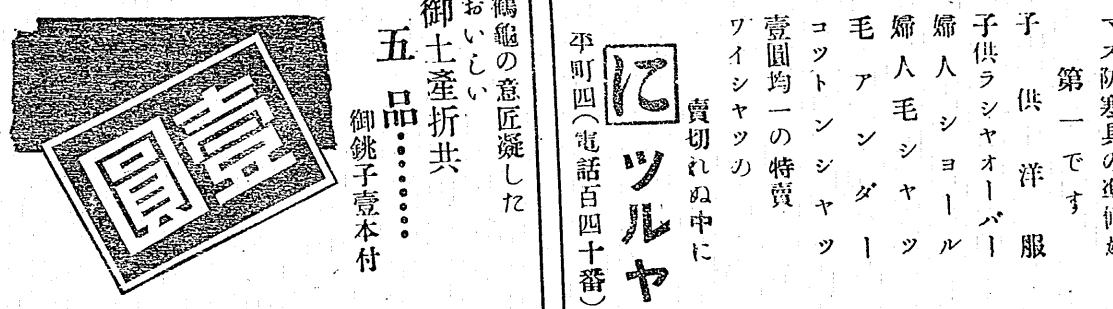 マス防寒具の準備が
第一です
子供洋服
子供ラシャオーバー
婦人ショール
婦人毛シャツ
毛アンダー
コットンシャツ
壹圓均一の特賣
ワイシャツの
賣切れぬ中に
に ツルヤ
平町四(電話百四十番)
鶴龜の意匠凝した
おいしい
御土産折共
五品・・・・・・・・
御銚子壹本付
壹圓